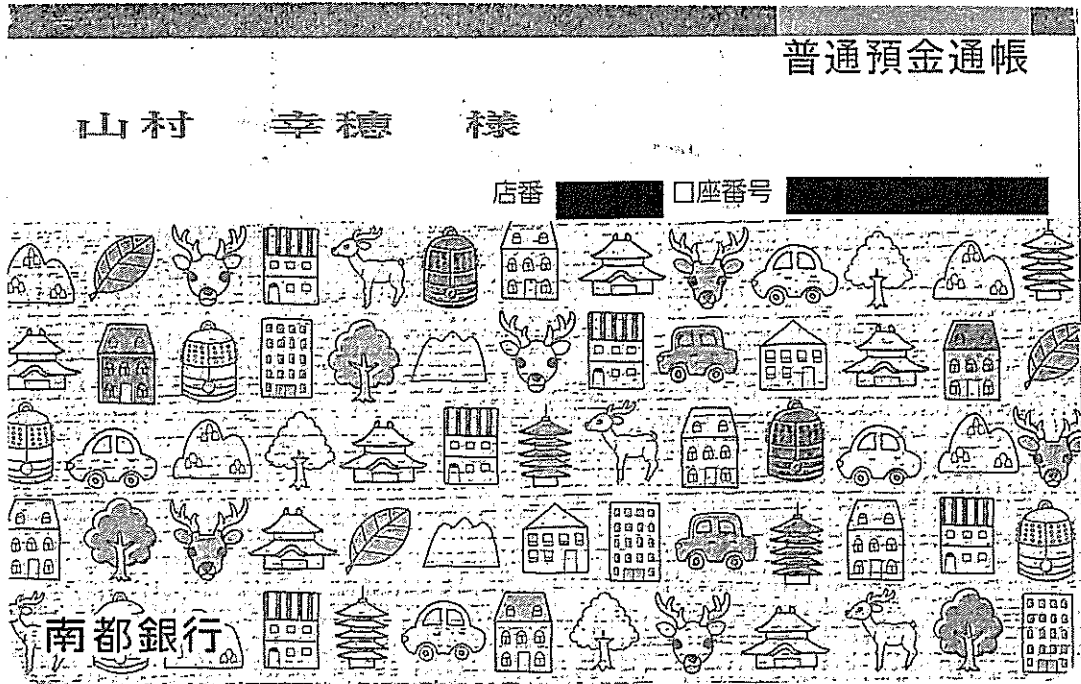 普通預金通帳
山村 幸穂 様
店番 口座番号
南都銀行